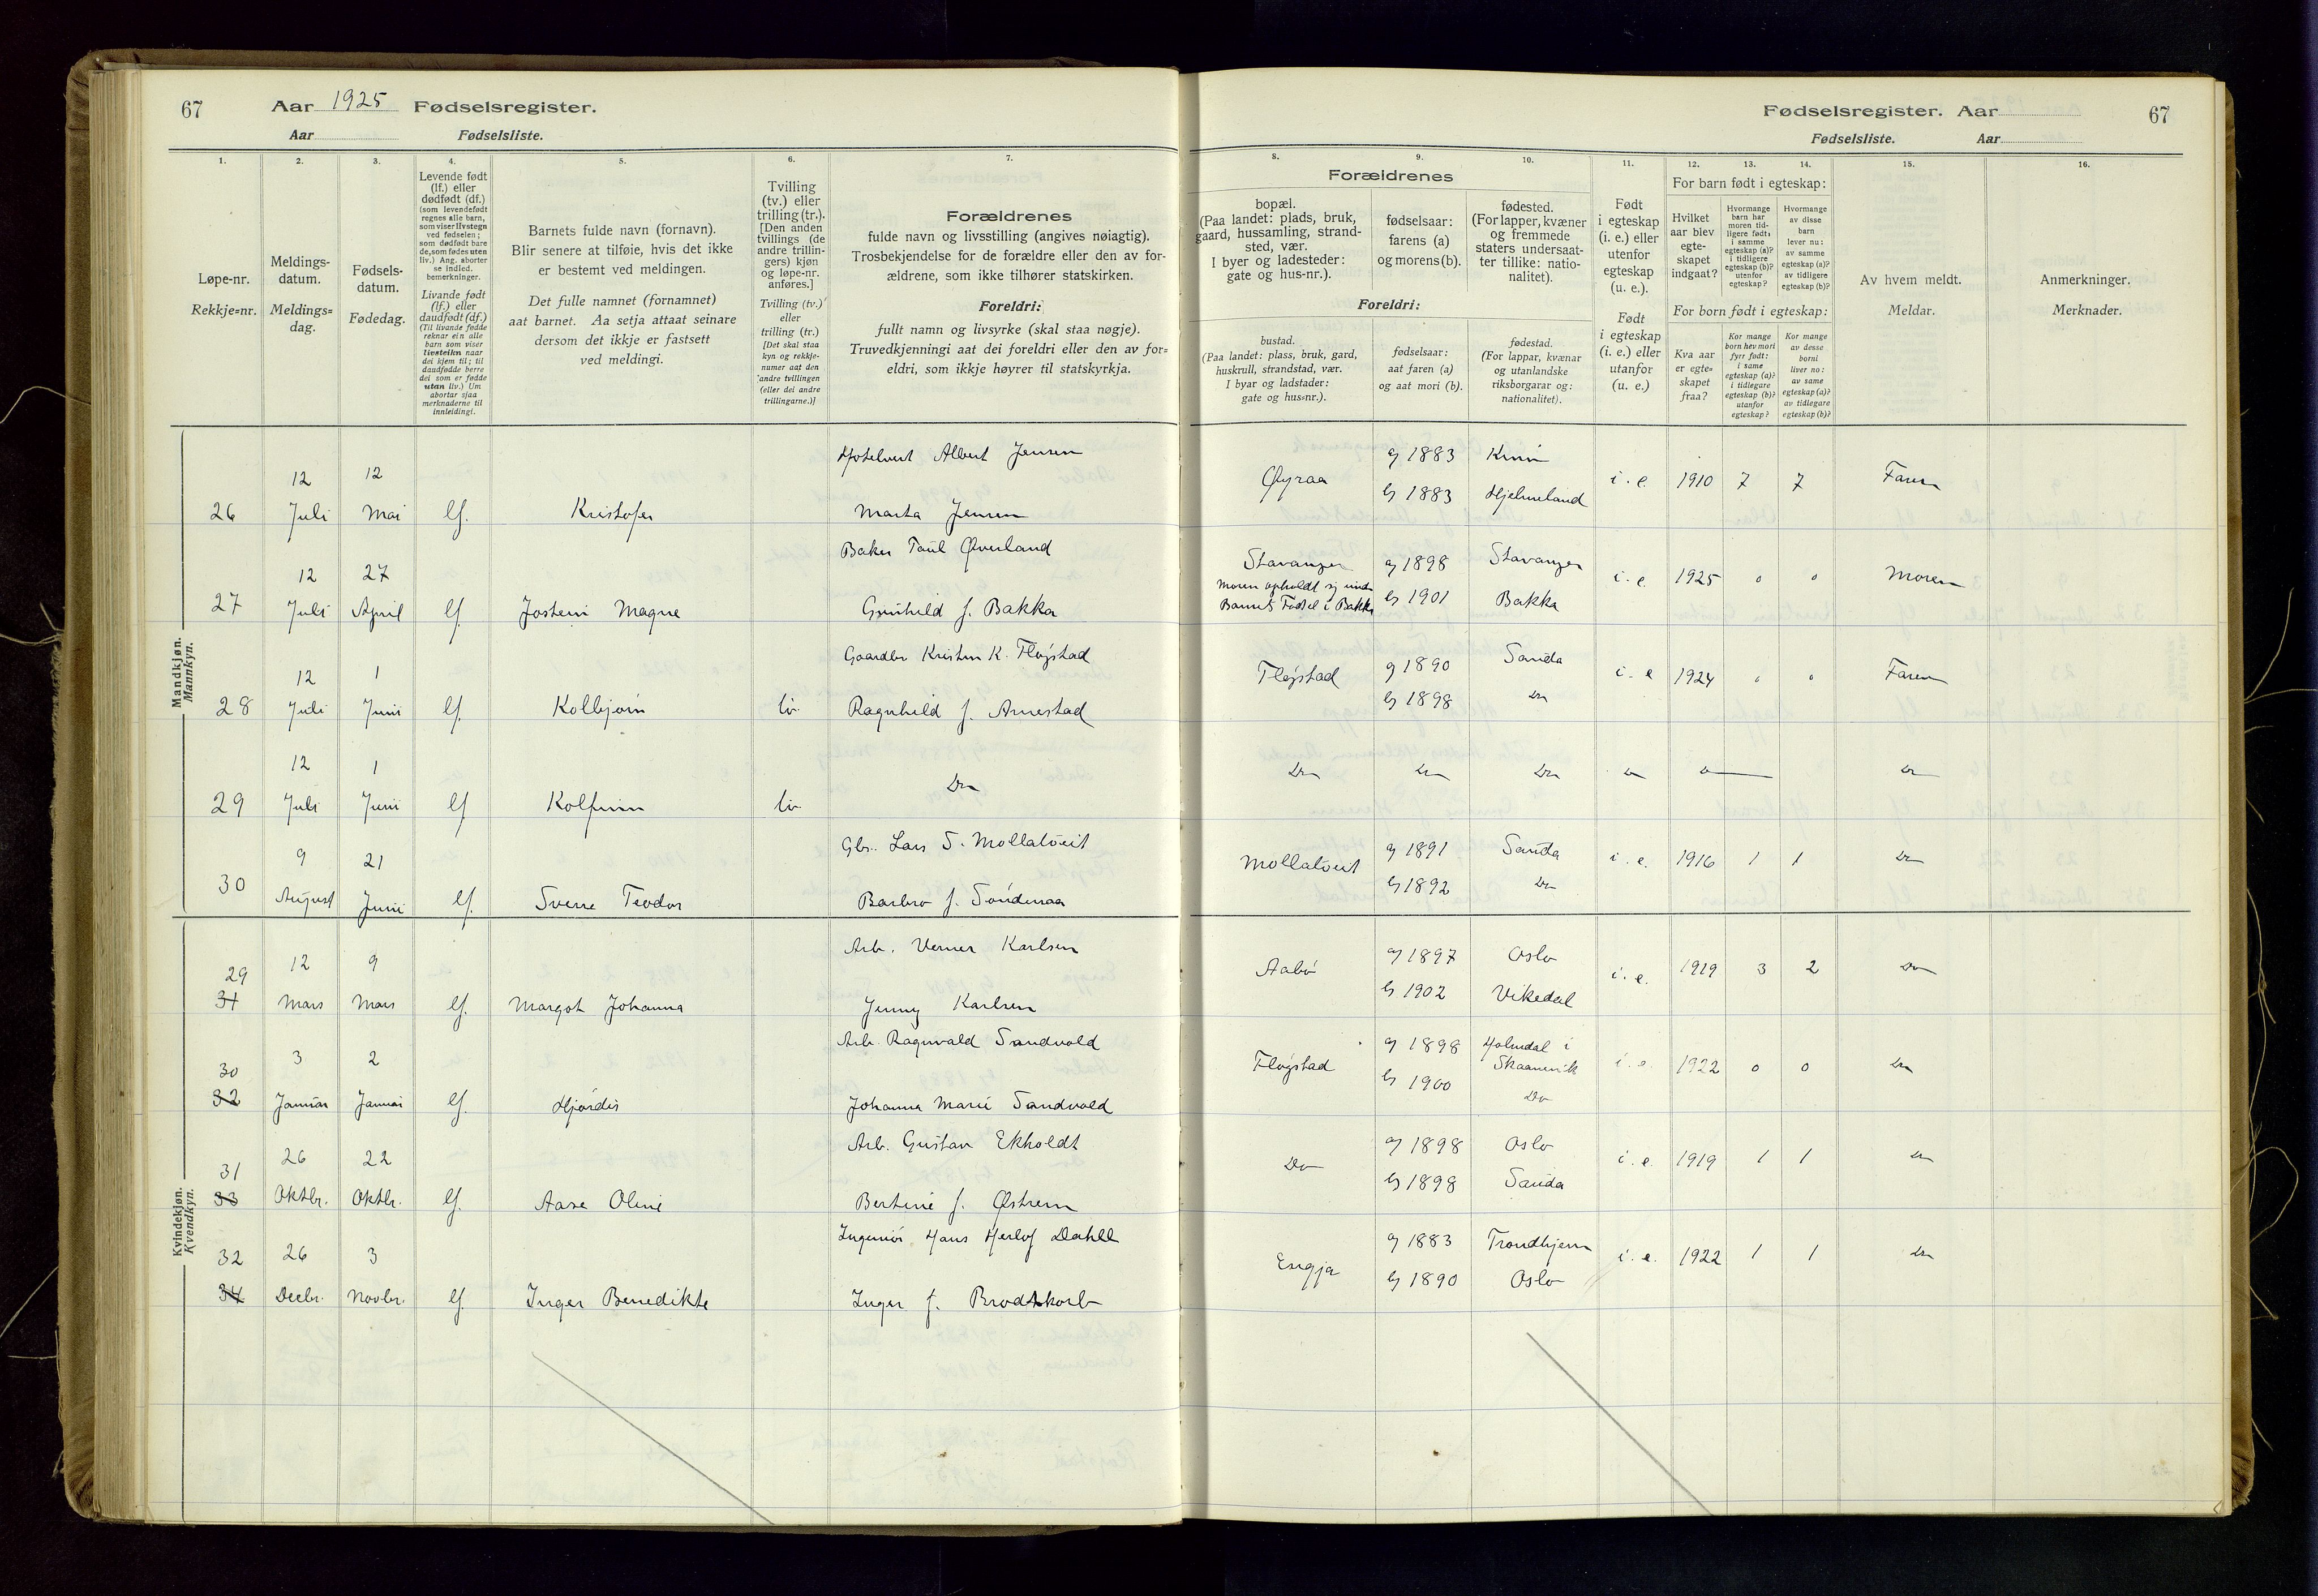 67 Aar 1925 Fødselsregister.
Aar Fødselsliste.
Fødselsregister. Aar 67
Fødselsliste. Aar
1. 2. 3. 4. 5. 6. 7. 8. 9. 10. 11. 12. 13. 14. 15. 16.
Løpe-nr.
Rekkje=nr.
Meldings-
datum.
Meldings=
dag.
Fødsels-
datum.
Fødedag.
Levende født
(lf.) eller
dødfødt (df.)
(som levendefødt
regnes alle barn,
som viser livstegn
ved fødselen;
som dødfødt bare
de, som fødes uten
liv.) Ang. aborter
se indled.
bemerkninger.
Livande født
(lf.) eller
daudfødt (df.)
(Til livande fødde
reknar ein alle
barn som viser
livsteikn naar
dei kjem til; til
daudfødde berre
dei som er fødde
utan liv.) Um
abortar sjaa
merknaderne til
innleidingi.
Barnets fulde navn (fornavn).
Blir senere at tilføie, hvis det ikke
er bestemt ved meldingen.
Det fulle namnet (fornamnet)
aat barnet. Aa setja attaat seinare
dersom det ikkje er fastsett
ved meldingi.
Tvilling
(tv.) eller
trilling (tr.).
[Den anden
tvillings (de
andre trillin-
gers) kjøn
og løpe-nr.
anføres.]
Tvilling (tv.)
eller
trilling (tr.)
[Det skal staa
kyn og rekkje-
numer aat den
andre tvillingen
(eller dei andre
trillingarne.)]
Forældrenes
fulde navn og livsstilling (angives nøiagtig).
Trosbekjendelse for de forældre eller den av for-
ældrene, som ikke tilhører statskirken.
Foreldri:
fullt namn og livsyrke (skal staa nøgje).
Truvedkjenningi aat dei foreldri eller den av for=
eldri, som ikkje høyrer til statskyrkja.
Forældrenes
bopæl.
(Paa landet: plads, bruk,
gaard, hussamling, strand-
sted, vær.
I byer og ladesteder:
gate og hus-nr.).
fødselsaar:
farens (a)
og morens (b).
fødested.
(For lapper, kvæner
og fremmede
staters undersaat-
ter tillike: natio-
nalitet).
Foreldri:
bustad.
(Paa landet: plass, bruk, gard,
huskrull, strandstad, vær.
I byar og ladstader:
gate og hus=nr.).
fødselsaar:
aat faren (a)
og aat mori (b).
fødestad.
(For lappar, kvænar
og utanlandske
riksborgarar og:
nationalitet).
Født
i egteskap
(i. e.) eller
utenfor
egteskap
(u. e.).
Født
i egteskap
(i. e.) eller
utanfor
(u. e.)
For barn født i egteskap:
Hvilket
aar blev
egte-
skapet
indgaat?
Hvormange
barn har
moren tid-
ligere født:
i samme
egteskap (a)?
i tidligere
egteskap (b)?
utenfor
egteskap?
Hvormange
av disse
barn
lever nu:
av samme
egteskap (a)?
av tidligere
egteskap (b)?
For born født i egteskap:
Kva aar
er egte=
skapet
fraa?
Kor mange
born hev mori
fyrr født:
i same
egteskap (a)?
i tidlegare
egteskap (b)?
utanfor
egteskap?
Kor mange
av desse
borni
liver no:
av same
egteskap (a)?
av tidlegare
egteskap (b)?
Av hvem meldt.
Meldar.
Anmerkninger.
Merknader.
Mandkjøn.
Mannkyn.
26 12 Juli 12 Mai lf. Kristofer
Hotelvert Albert Jensen
Marta Jensen
Øyraa a) 1883 Kinn
b) 1883 Hjelmeland
i. e. 1910 7 7 Faren
27 12 Juli 27 April lf. Jostein Magne
Baker Paul Øverland
Gunhild f. Bakka
Stavanger
Moren opholdt sig under
Barnets Fødsel i Bakka
a) 1898 Stavanger
b) 1901 Bakka
i. e. 1925 0 0 Moren
28 12 Juli 1 Juni lf. Kolbjørn tv.
Gaardbr Kristen K. Fløgstad
Ragnhild f. Arnestad
Fløgstad a) 1890 Sauda
b) 1898 Do
i. e 1924 0 0 Faren
29 12 Juli 1 Juni lf Kolfinn tv.
Do
Do Do Do Do Do Do
30 9 August 21 Juni lf. Sverre Teodor
Gbr. Lars S. Mollatveit
Barbro f. Søndenaa
Mollatveit a) 1891 Sauda
b) 1892 Do
i. e. 1916 1 1 Do
Kvindekjøn.
Kvendkyn.
29
31 12 Mars 9 Mars lf. Margot Johanna
Arb. Verner Karlsen
Jenny Karlsen
Aabø a) 1897 Oslo
b) 1902 Vikedal
i. e. 1919 3 2 Do
30
32 3 Januar 2 Januar lf. Hjørdis
Arb. Ragnvald Sandvold
Johanna Marie Sandvold
Fløgstad a) 1898 Holmdal i
Skaanevik
b) 1900 Do
i. e. 1922 0 0 Do
31
33 26 Oktbr. 22 Oktbr. lf. Aase Oline
Arb. Gustav Ekholdt
Bertine f. Østrem
Do a) 1898 Oslo
b) 1898 Sauda
i. e. 1919 1 1 Do
32
34 26 Decbr. 3 Novbr. lf. Inger Benedikte
Ingeniør Hans Herlof Dahll
Inger f. Brodtkorb
Engja a) 1883 Trondhjem
b) 1890 Oslo
i. e. 1922 1 1 Do